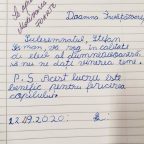 Se aprobă
Doamna Învățătoare,
Subsemnatul, Ștefan
vă rog în calitate
de elev al dumneavoastră
să nu ne dați vinerea teme.
P.S. Acest lucru este
benefic pentru fericirea
copilului.
22.09.2020.